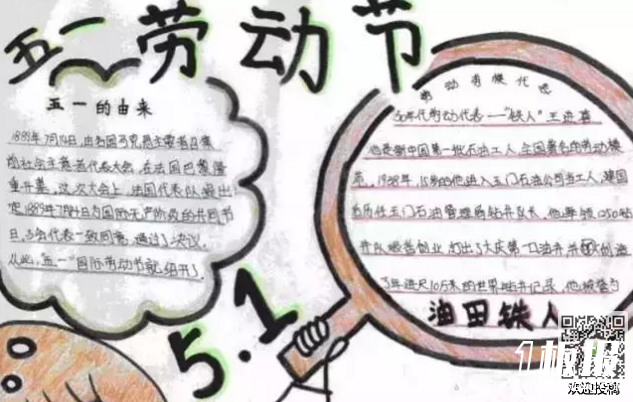 五一劳动节
五一的由来
1889年7月14日,由各国马克思主义者召集
的社会主义者代表大会,在法国巴黎隆
重开幕。这次大会上,法国代表
定1889年7月14日为国际无产阶级的共同节
日,与会代表一致同意,通过了决议。
从此,五一"国际劳动节就
5.1
劳动
年代劳动代表——"铁人"王进喜
他是新中国第一批石油工人,全国著名的劳动模
范,1938年,15岁的他进入玉门石油公司当工人,建国
后历任玉门石油管理局钻井队长,他率领1250钻
井队艰苦创业,打出了大庆第一口油井,并创造
了年进尺10万米的世界钻井纪录,他被誉为
油田铁人
1板报
欢迎投稿